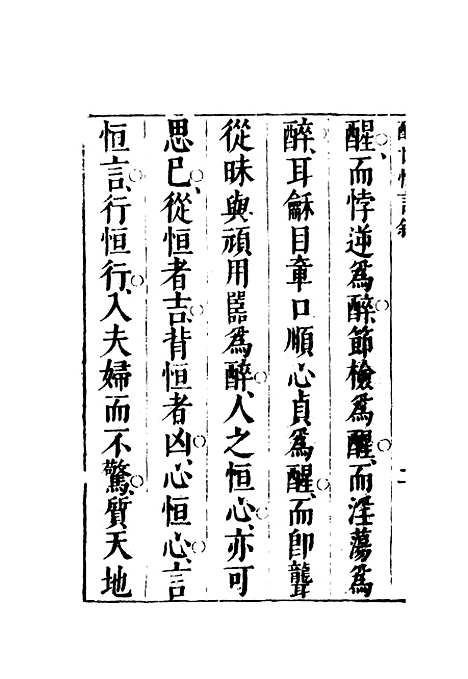 醒世恒言敘 二
醒、而悖逆爲醉、節檢爲醒、而淫蕩爲
醉、耳龢目章口順心貞爲醒、而卽聾
從昧與頑用嚚爲醉、人之恒心、亦可
思巳、從恒者吉、背恒者凶、心恒心、言
恒言、行恒行、入夫婦而不驚、質天地